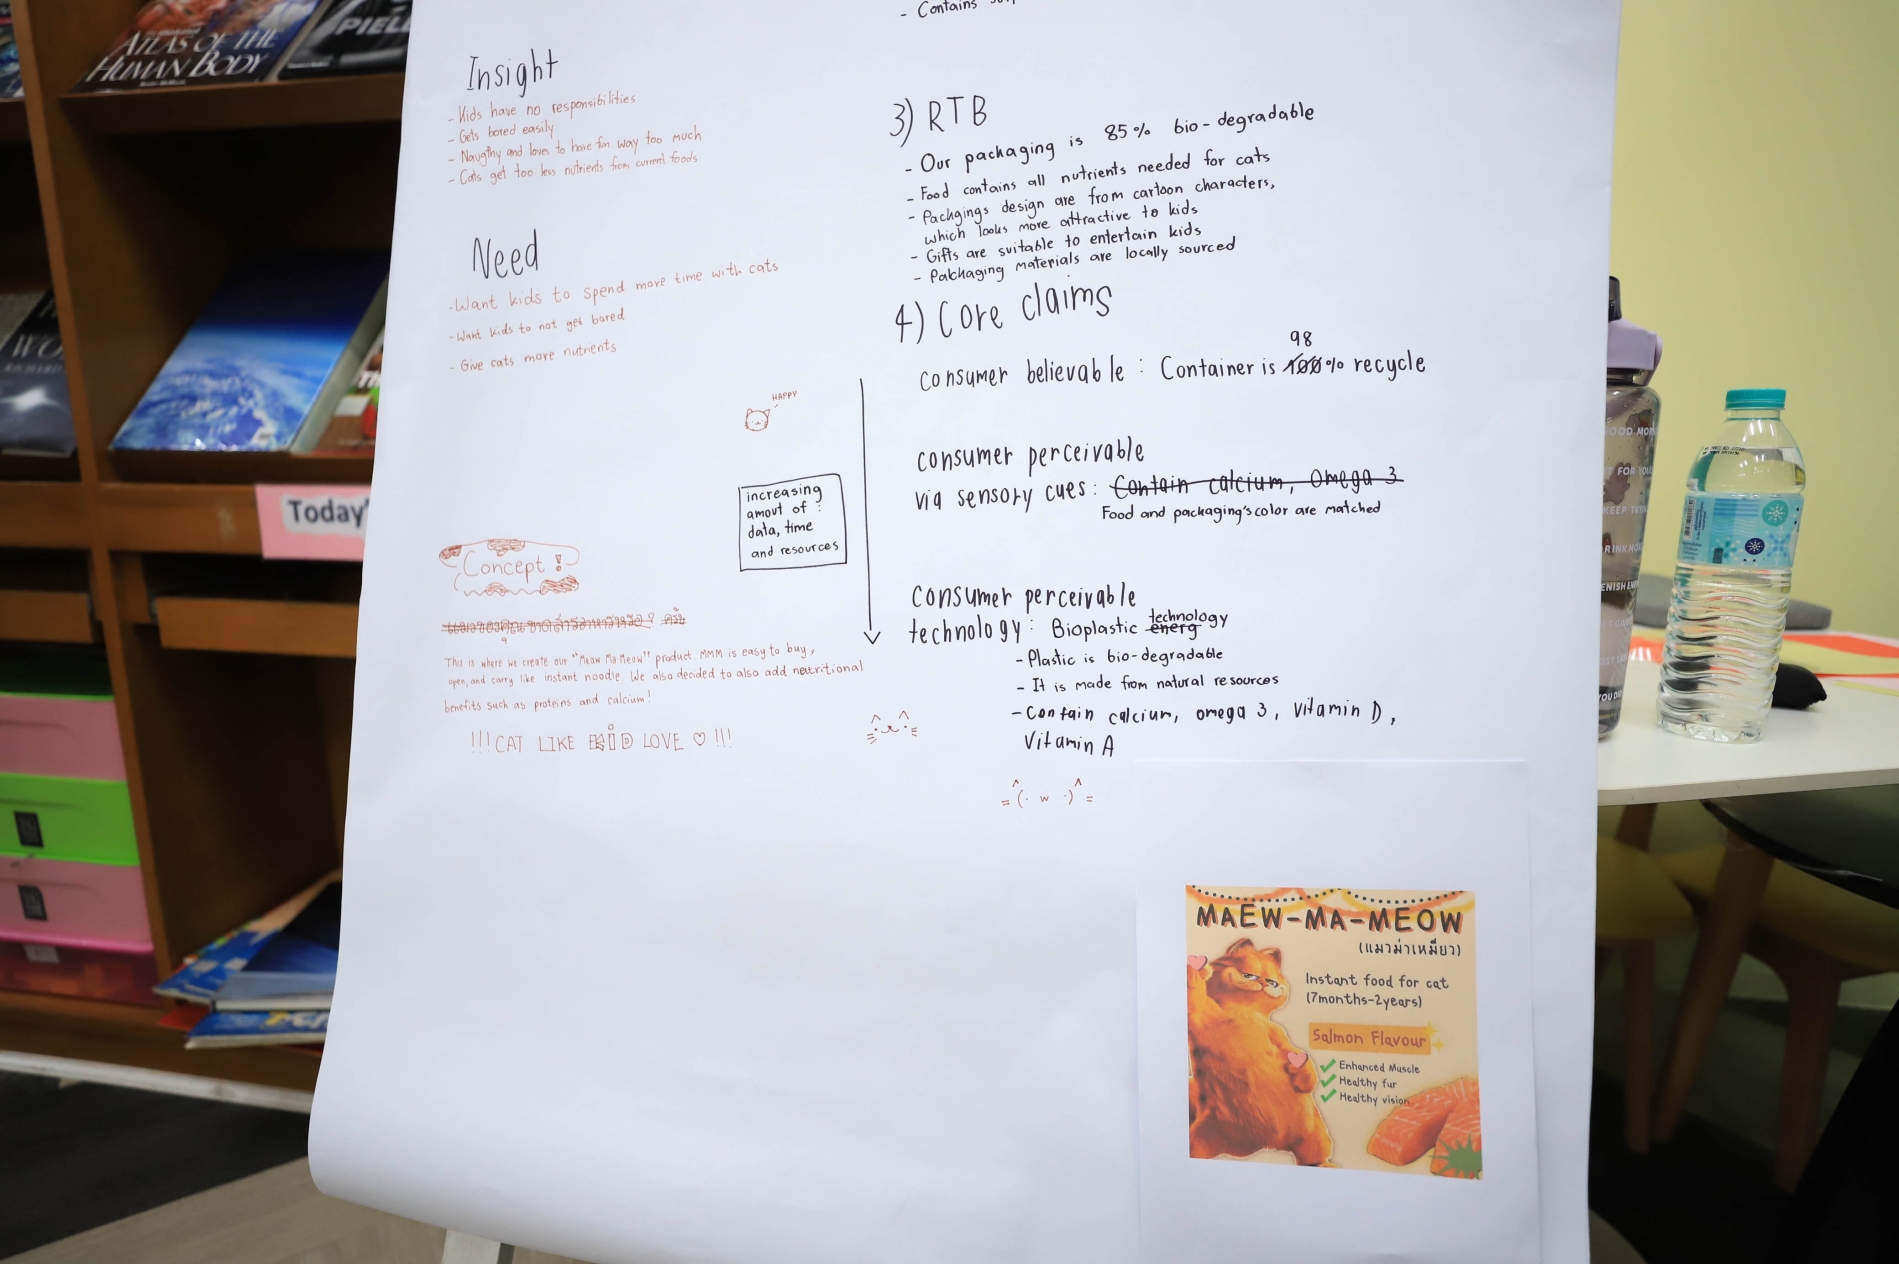 ATLAS OF THE
HUMAN BODY
Today'
- Contains
Insight
- Kids have no responsibilities
- Gets bored easily
- Naugthy and loves to have fun way too much
- Cats get too less nutrients from current foods
Need
- Want kids to spend more time with cats
- Want kids to not get bored
- Give cats more nutrients
HAPPY
increasing
amout of :
data, time
and resources
Concept !
This is where we create our "Meaw Ma Meow" product. MMM is easy to buy,
open, and carry like instant noodle. We also decided to also add neutritional
benefits such as proteins and calcium!
!!!CAT LIKE KiD LOVE ♡ !!!
3) RTB
- Our packaging is 85% bio-degradable
- Food contains all nutrients needed for cats
- Pachgings design are from cartoon characters,
which looks more attractive to kids
- Gifts are suitable to entertain kids
- Patchaging materials are locally sourced
4) Core claims
98
consumer believable : Container is 100% recycle
consumer perceivable
via sensory cues: Contain calcium, Omega 3
Food and packaging's color are matched
consumer perceivable
technology
technology: Bioplastic energ
- Plastic is bio-degradable
- It is made from natural resources
- Contain calcium, omega 3, vitamin D,
Vitamin A
= (· w ·) =
MAEW-MA-MEOW
(แมวม่าเหมียว)
Instant food for cat
(7months-2years)
Salmon Flavour
Enhanced Muscle
Healthy fur
Healthy vision